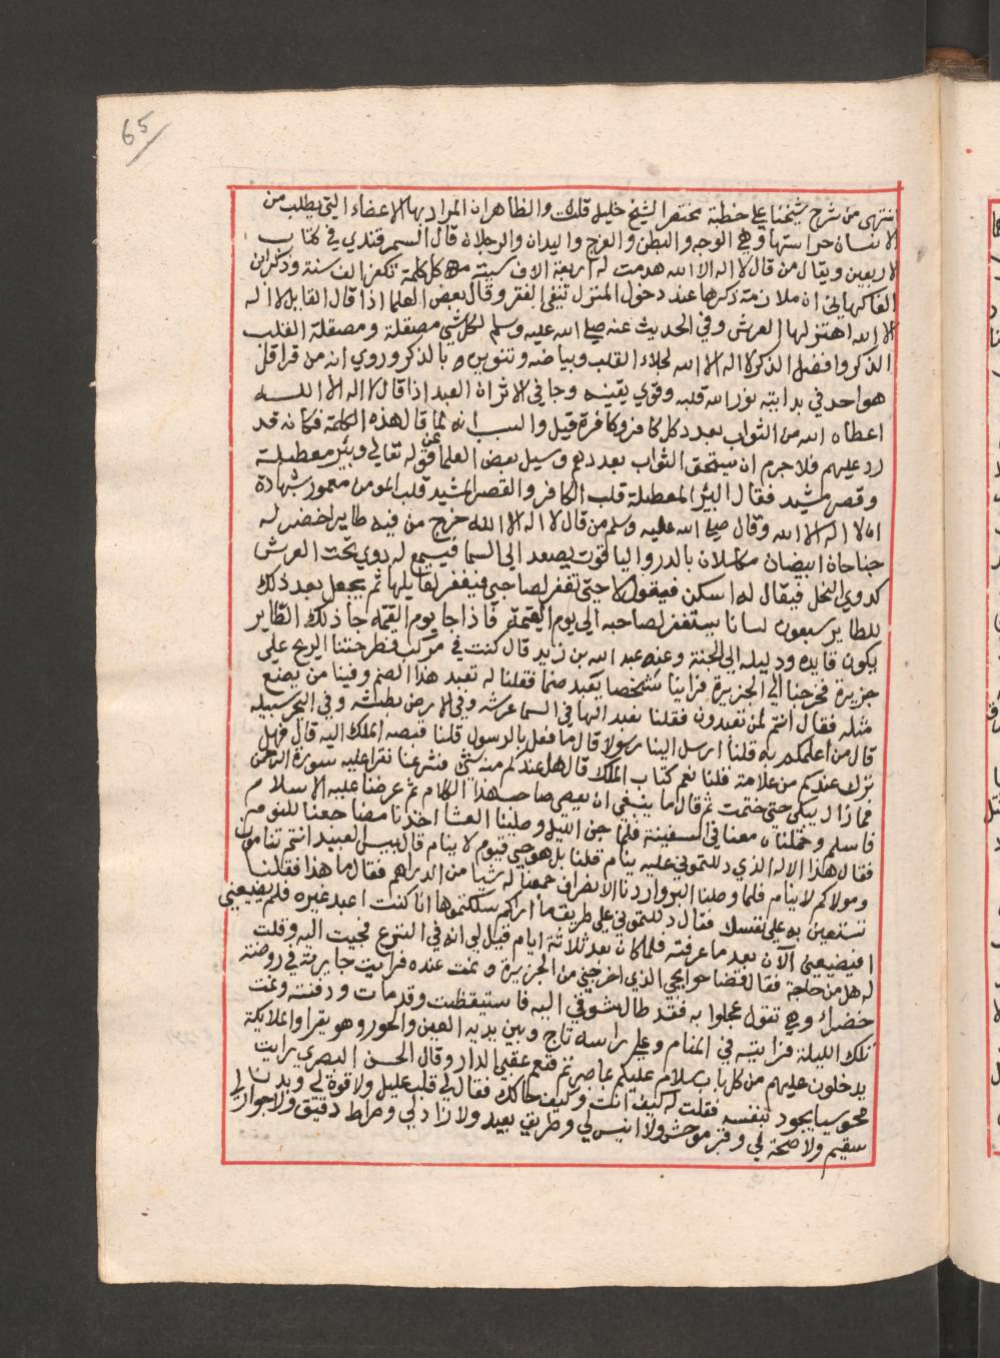 65
انتهى من شرح شيخنا على خطبة مختصر الشيخ خليل قلت والظاهر ان المراد بها الاعضاء التى يطلب من
الانسان حراستها وهي الوجه والبطن والفرج واليدان والرجلان قال السمرقندي في كتاب
الاربعين ويقال من قال لا اله الا الله هدمت له اربعة الاف سيئة كل كلمة تكفر الف سنة وذكر ابن
الفاكهاني ان ملازمة ذكرها عند دخول المنزل تنفى الفقر وقال بعض العلما اذا قال القايل لا اله
الا الله اهتز لها العرش وفي الحديث عنه صلى الله عليه وسلم لكل شي مصقلة ومصقلة القلب
الذكر وافضل الذكر لا اله الا الله لجلاء القلب وبياضه وتنويره بالذكر وروي انه من قرا قل
هو احد في بدايته نور الله قلبه وقوي يقينه وجا في الاثر ان العبد اذا قال لا اله الا الله
اعطاه الله من الثواب بعدد كل كافر وكافرة قيل والسبب انه لما قال هذه الكلمة فكانه قد
رد عليهم فلا جرم ان يستحق الثواب بعددهم وسيل بعض العلما عن قوله تعالى وبئر معطلة
وقصر مشيد فقال البئر المعطلة قلب الكافر والقصر المشيد قلب المومن معمور بشهادة
ان لا اله الا الله وقال صلى الله عليه وسلم من قال لا اله الا الله خرج من فيه طاير اخضر له
جناحان ابيضان مكللان بالدر والياقوت يصعد الى السما فيسمع له دوي تحت العرش
كدوي النحل فيقال له اسكن فيقول لا حتى تغفر لصاحبي فيغفر لقايلها ثم يجعل بعد ذلك
للطاير سبعون لسانا يستغفر لصاحبه الى يوم القيمة فاذا جا يوم القيمة جا ذلك الطاير
يكون قايده ودليله الى الجنة وعن عبد الله بن زيد قال كنت في مركب فطرحتنا الريح على
جزيرة فخرجنا الى الجزيرة فراينا شخصا يعبد صنما فقلنا له تعبد هذا الصنم وفينا من يصنع
مثله فقال انتم لمن تعبدون فقلنا نعبد الها في السما عرشه وفي الارض بطشه وفي البحر سبيله
قال من اعلمكم به قلنا ارسل الينا رسولا قال ما فعل بالرسول قلنا قبضه الملك اليه قال فهل
ترك عندكم من علامة قلنا نعم كتاب الملك قال هل عندكم منه شي فشرعنا نقرا عليه سورة الرحمن
فما زال يبكى حتى ختمت ثم قال ما ينبغى ان يعصى صاحب هذا الكلام ثم عرضنا عليه الاسلام
فاسلم وحملناه معنا في السفينة فلما جن الليل وصلينا العشا اخذنا مضاجعنا للنوم
فقال هذا الاله الذي دللتموني عليه ينام قلنا بل هو حي قيوم لا ينام قال بيس العبيد انتم تنامون
ومولاكم لا ينام فلما وصلنا البر واردنا الانصراف جمعنا له شيا من الدراهم فقال ما هذا فقلنا
تستعين به على نفسك فقال دللتموني على طريق ما اراكم سلكتموها انا كنت اعبد غيره فلم يضيعني
افيضيعني الآن بعد ما عرفته فلما كان بعد ثلاثة ايام قيل لي انه في النزع فجيت اليه وقلت
له هل من حاجة فقال قضا حوايجي الذي اخرجني من الجزيرة ونمت عنده فرايت جارية في روضة
خضراء وهي تقول عجلوا به فقد طال شوقي اليه فاستيقظت وقد مات ودفنته ونمت
تلك الليلة فرايته في المنام وعلى راسه تاج وبين يديه العين والحور وهو يقرا والملايكة
يدخلون عليهم من كل باب سلام عليكم بما صبرتم فنعم عقبى الدار وقال الحسن البصري رايت
مجوسيا يجود بنفسه فقلت له كيف انت وكيف حالك فقال لي قلب عليل ولا قوة لي وبدن
سقيم ولا صحة لي وقبر موحش ولا انيس لي وطريق بعيد ولا زاد لي وصراط دقيق ولا جواز لي